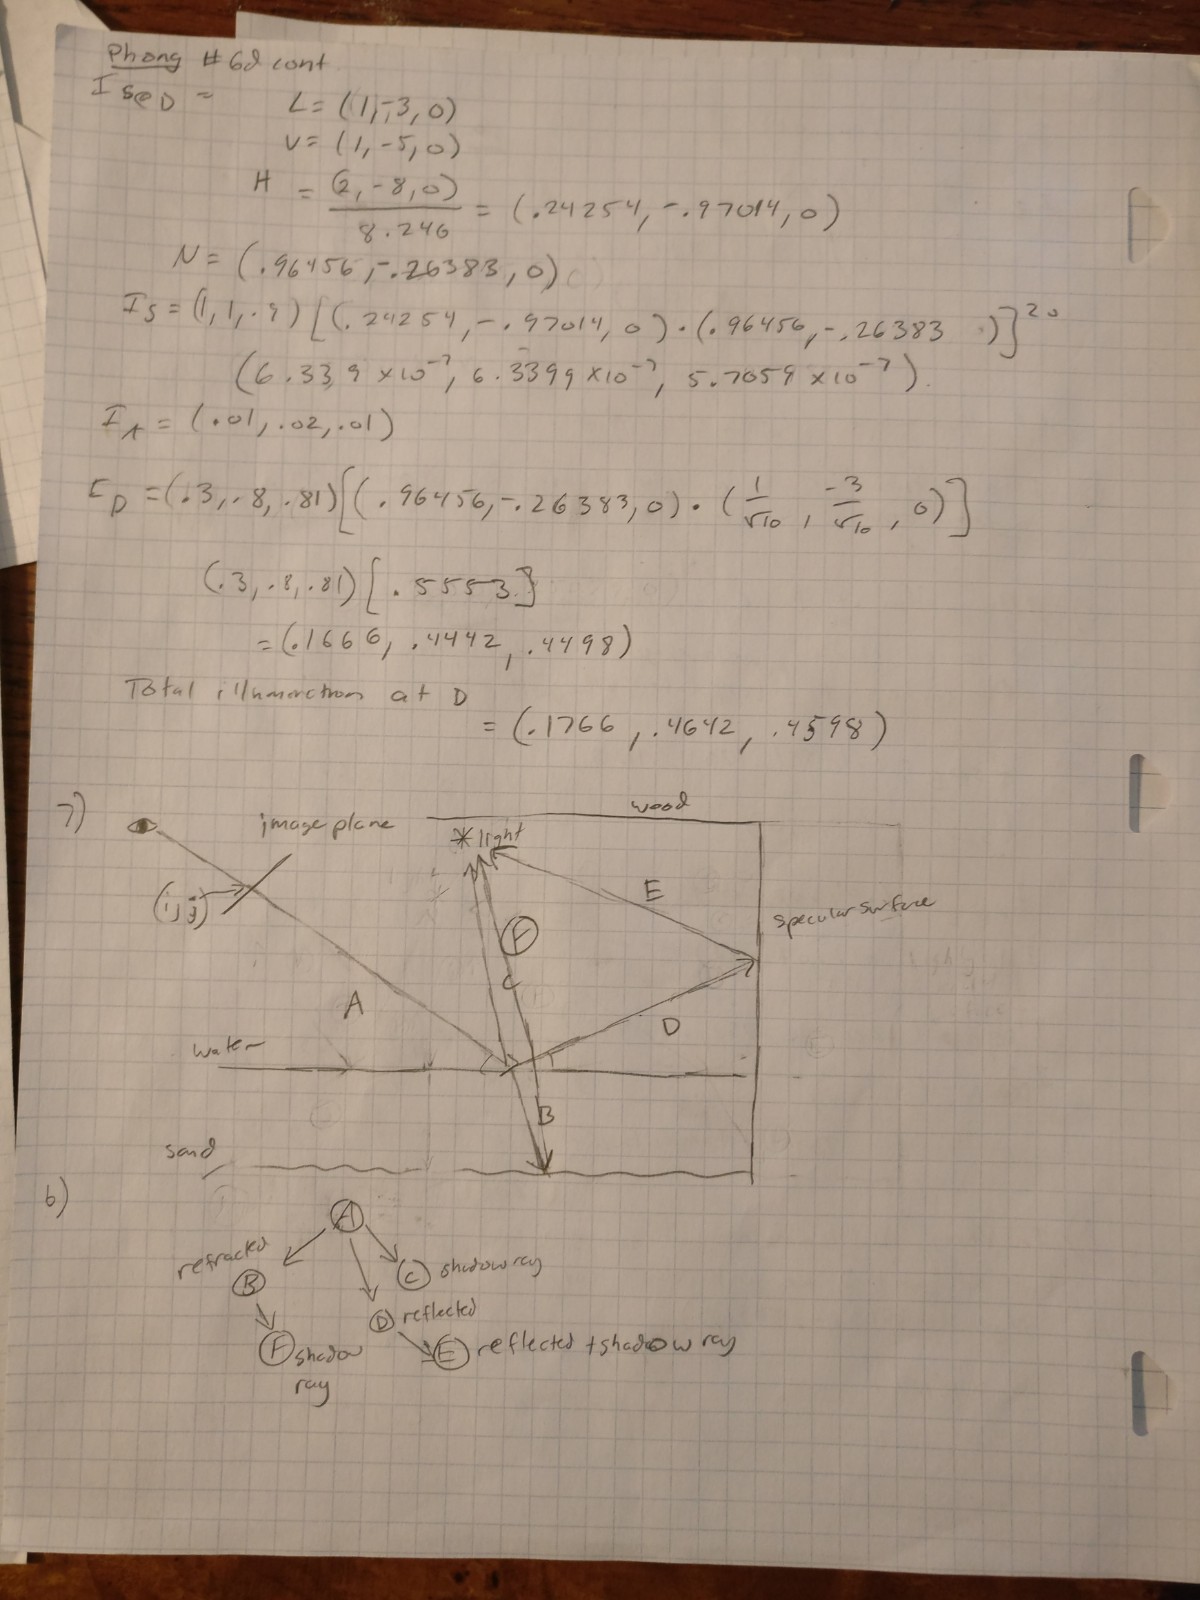 Phong #6d cont
I s@D =
L = (1, -3, 0)
V = (1, -5, 0)
H = (2, -8, 0) / 8.246 = (.24254, -.97014, 0)
N = (.96456, -.26383, 0)
Is = (1, 1, .9) [(.24254, -.97014, 0) · (.96456, -.26383 )]^20
(6.339 x10^-7, 6.3399 x10^-7, 5.7059 x10^-7).
IA = (.01, .02, .01)
ID = (.3, .8, .81)[(.96456, -.26383, 0) · (1/√10, -3/√10, 0)]
(.3, .8, .81) [.5553]
= (.1666, .4442, .4498)
Total illumination at D
= (.1766, .4642, .4598)
7)
image plane
wood
light
(i, j)
E
specular surface
F
C
A
D
water
B
sand
b)
A
refracted
B
C shadow ray
D reflected
F shadow ray
E reflected + shadow ray